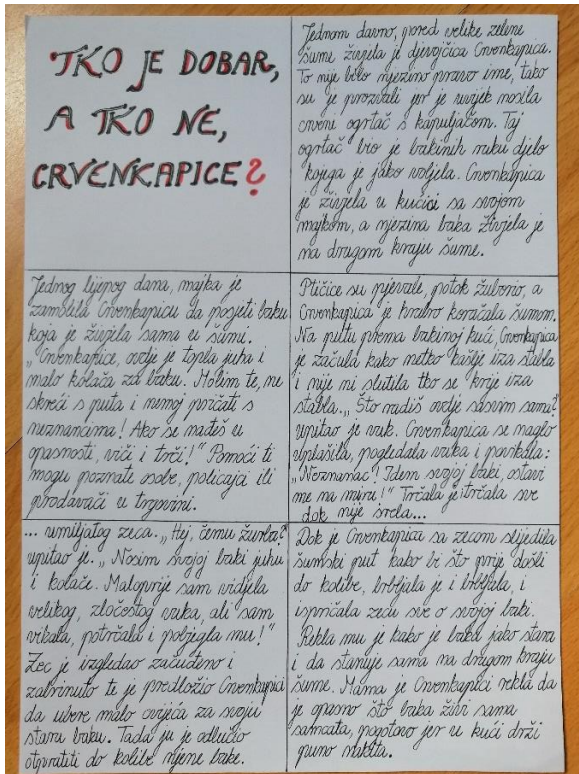 TKO JE DOBAR,
A TKO NE,
CRVENKAPICE?
Jednom davno, pored velike zelene
šume živjela je djevojčica Crvenkapica.
To nije bilo njezino pravo ime, tako
su je prozvali jer je uvijek nosila
crveni ogrtač s kapuljačom. Taj
ogrtač bio je bakinih ruku djelo
kojega je jako voljela. Crvenkapica
je živjela u kućici sa svojom
majkom, a njezina baka živjela je
na drugom kraju šume.
Jednog lijepog dana, majka je
zamolila Crvenkapicu da posjeti baku
koja je živjela sama u šumi.
„Crvenkapice, ovdje je topla juha i
malo kolača za baku. Molim te, ne
skreći s puta i nemoj pričati s
neznancima! Ako se nađeš u
opasnosti, viči i trči!" Pomoći ti
mogu poznate osobe, policajci ili
prodavači u trgovini.
Ptičice su pjevale, potok žuborio, a
Crvenkapica je hrabro koračala šumom.
Na putu prema bakinoj kući, Crvenkapica
je začula kako netko kašlje iza stabla
i nije ni slutila tko se krije iza
stabla. „Što radiš ovdje sasvim sama?"
upitao je vuk. Crvenkapica se naglo
uplašila, pogledala vuka i povikala:
„Neznanac! Idem svojoj baki, ostavi
me na miru!" Trčala je i trčala sve
dok nije srela...
... umiljatog zeca. „Hej, čemu žurba?"
upitao je. „Nosim svojoj baki juhu
i kolače. Maloprije sam vidjela
velikog, zločestog vuka, ali sam
vikala, potrčala i pobjegla mu!"
Zec je izgledao začuđeno i
zabrinuto te je predložio Crvenkapici
da ubere malo cvijeća za svoju
staru baku. Tada ju je odlučio
otpratiti do kolibe njene bake.
Dok je Crvenkapica sa zecom slijedila
šumski put kako bi što prije došli
do kolibe, brbljala je i brbljala, i
ispričala zecu sve o svojoj baki.
Rekla mu je kako je baka jako stara
i da stanuje sama na drugom kraju
šume. Mama je Crvenkapici rekla da
je opasno što baka živi sama
samcata, pogotovo jer u kući drži
puno nakita.